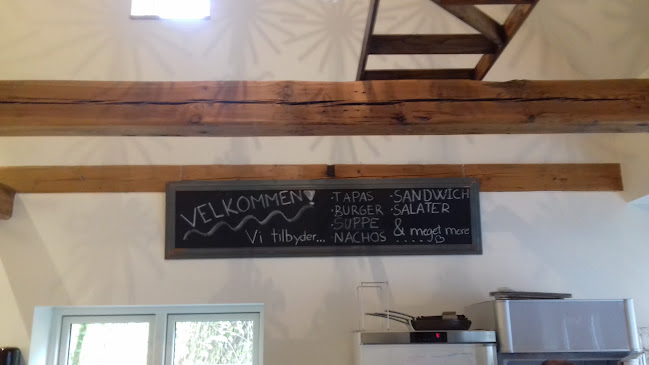 VELKOMMEN!
Vi tilbyder...
· TAPAS
· BURGER
· SUPPE
NACHOS
· SANDWICH
· SALATER
& meget mere